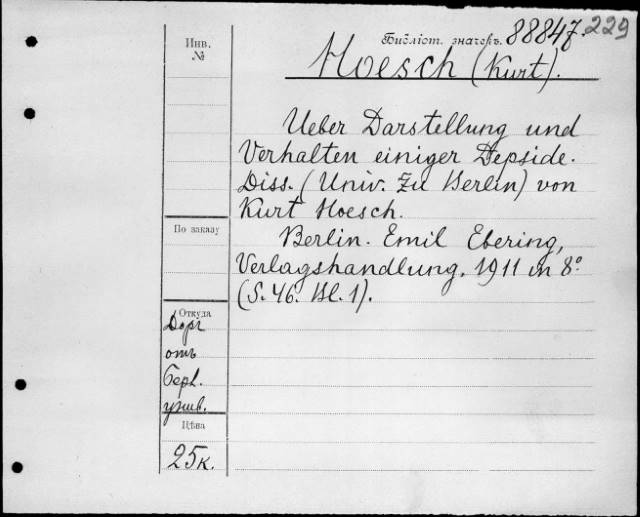 Библіот. значекъ. 88847. 229
Инв.
№
Hoesch (Kurt).
Ueber Darstellung und
Verhalten einiger Depside.
Diss. (Univ. zu Berlin) von
Kurt Hoesch.
По заказу
Berlin. Emil Ebering,
Verlagshandlung. 1911 in 8º
(S. 46. Bl. 1).
Откуда
отъ
Берл.
унив.
Цѣна
25к.